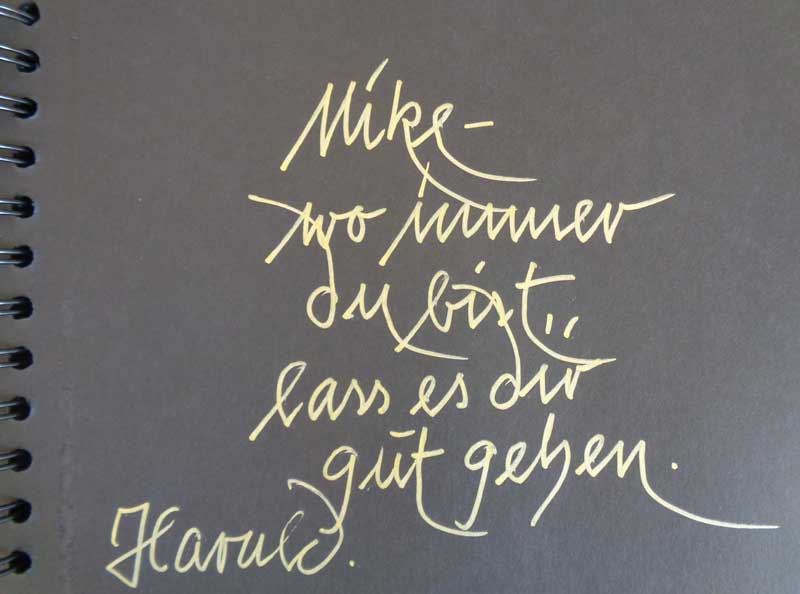 Mike –
wo immer
du bist,
lass es dir
gut gehen.
Harald.